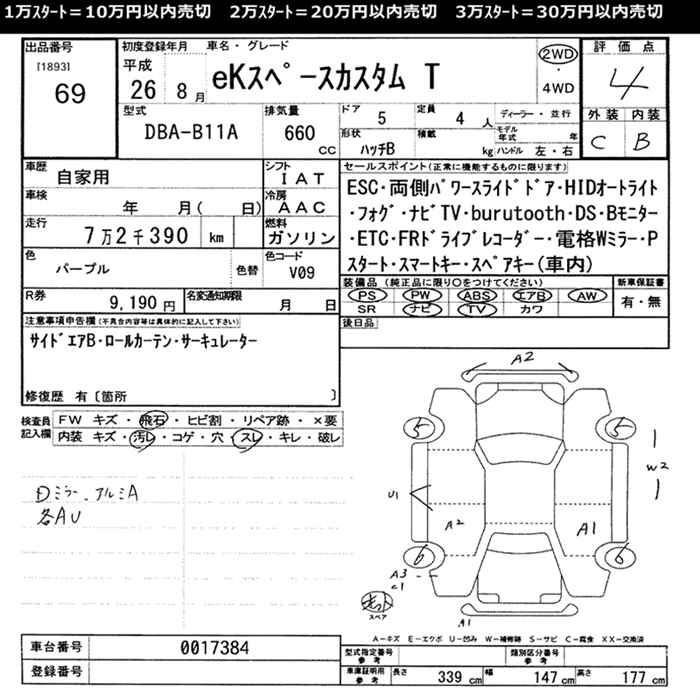 1万ｽﾀｰﾄ＝10万円以内売切　2万ｽﾀｰﾄ＝20万円以内売切　3万ｽﾀｰﾄ＝30万円以内売切
出品番号
[1893]
69
初度登録年月
平成
26 8月
車名・グレード
eKスペースカスタム T
2WD
・
4WD
評価点
4
外装 内装
C B
型式
DBA-B11A
排気量
660 cc
ドア
5
定員
4 人
形状
ハッチB
積載
kg
ディーラー・並行
モデル年式 年
ハンドル 左・右
車歴
自家用
シフト
IAT
車検
年 月( 日)
冷房
AAC
走行
7万2千390 km
燃料
ガソリン
色
パープル
色替
色コード
V09
R券
9,190 円
名変通知期限
月 日
セールスポイント(正常に機能するものに限ります)
ESC・両側パワースライドドア・HIDオートライト
・フォグ・ナビTV・burutooth・DS・Bモニター
・ETC・FRドライブレコーダー・電格Wミラー・P
スタート・スマートキー・スペアキー(車内)
装備品 (純正品に限り○をつけてください)
PS PW ABS エアB AW
SR ナビ TV カワ
新車保証書
有・無
後日品
注意事項申告欄(不具合内容等は具体的に記入して下さい)
サイドエアB・ロールカーテン・サーキュレーター
修復歴 有〔箇所 〕
検査員
記入欄
FW キズ・飛石・ヒビ割・リペア跡・×要
内装 キズ・汚レ・コゲ・穴・スレ・キレ・破レ
Dミラー、アルミA
各AU
A2
5
5
W2
U1
A2
A1
6
6
A3
C1
A1
スペア
A－キズ E－エクボ U－凹み W－補修跡 S－サビ C－腐食 XX－交換済
車台番号
0017384
登録番号
型式指定番号
参考
類別区分番号
参考
車庫証明用
参考
長さ 339 cm 幅 147 cm 高さ 177 cm